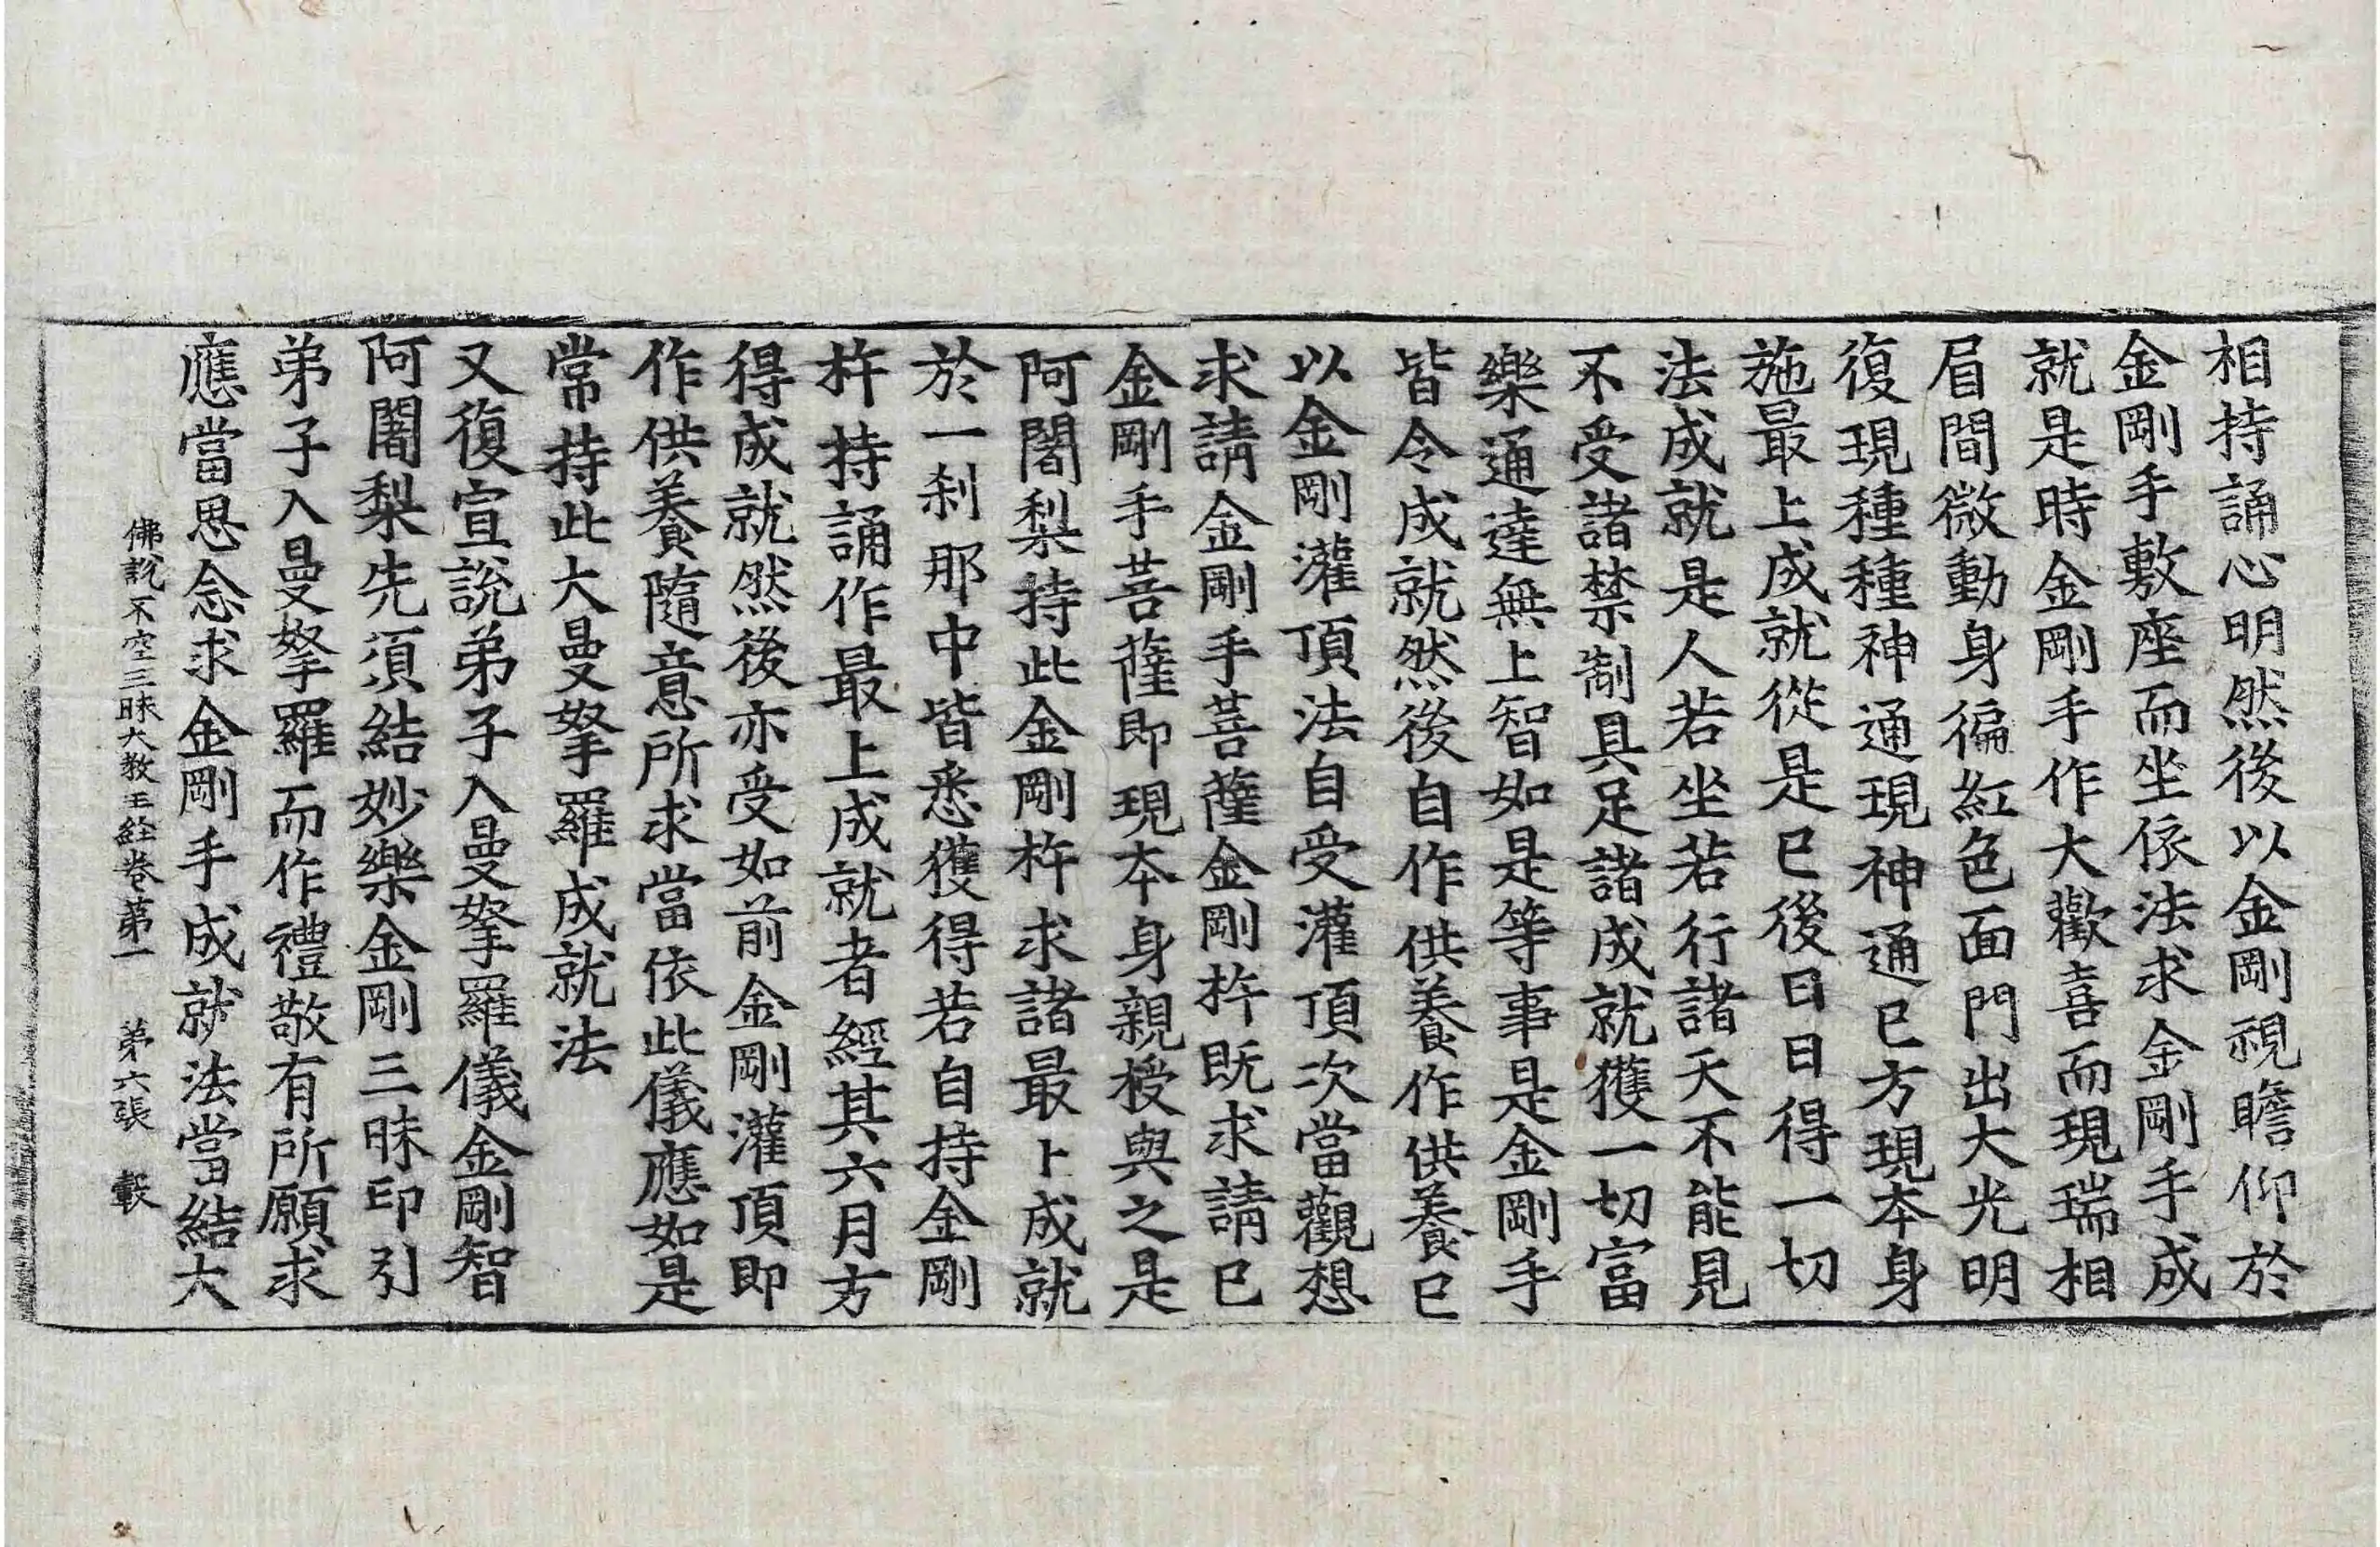 相持誦心明然後以金剛視瞻仰於
金剛手敷座而坐依法求金剛手成
就是時金剛手作大歡喜而現瑞相
眉間微動身徧紅色面門出大光明
復現種種神通現神通已方現本身
施最上成就從是已後日日得一切
法成就是人若坐若行諸天不能見
不受諸禁制具足諸成就獲一切富
樂通達無上智如是等事是金剛手
皆令成就然後自作供養作供養已
以金剛灌頂法自受灌頂次當觀想
求請金剛手菩薩金剛杵既求請已
金剛手菩薩即現本身親授與之是
阿闍梨持此金剛杵求諸最上成就
於一剎那中皆悉獲得若自持金剛
杵持誦作最上成就者經其六月方
得成就然後亦受如前金剛灌頂即
作供養隨意所求當依此儀應如是
常持此大曼拏羅成就法
又復宣說弟子入曼拏羅儀金剛智
阿闍梨先須結妙樂金剛三昧印引
弟子入曼拏羅而作禮敬有所願求
應當思念求金剛手成就法當結大
佛說不空三昧大教王經卷第一 第六張 轂